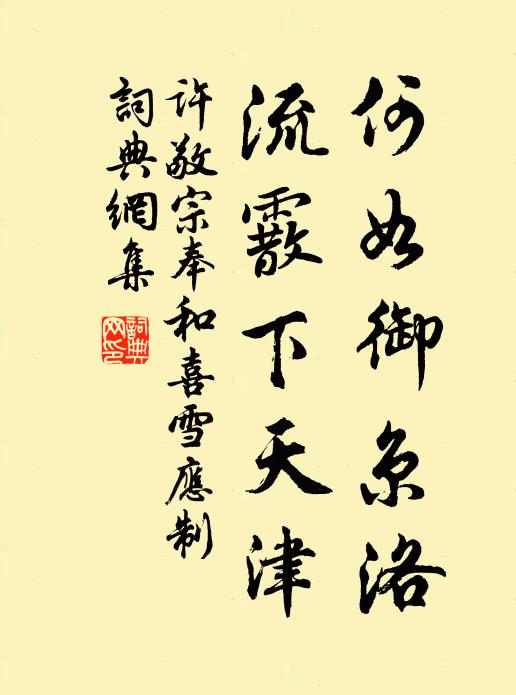 何如御京洛
流霰下天津
許敬宗奉和喜雪應制
詞典網集
詞典網印